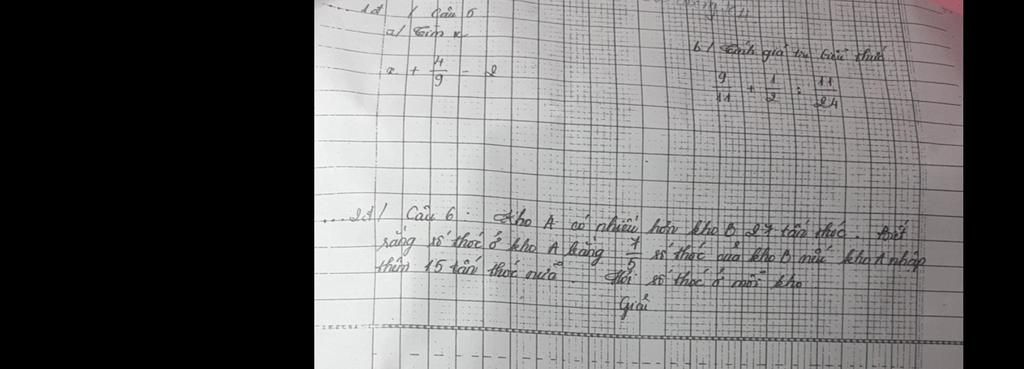 1đ / Câu 5
a/ Tìm x
b/ Tính giá trị biểu thức
x + 4/9 = 2
9/11 + 1/2 : 11/24
2đ / Câu 6 : Kho A có nhiều hơn kho B 27 tấn thóc. Biết
rằng số thóc ở kho A bằng 7/5 số thóc của kho B nếu kho A nhập
thêm 15 tấn thóc nữa. Hỏi số thóc ở mỗi kho
Giải